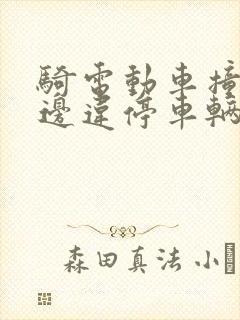 騎電動車撞
邊違停車輛
森田真法 小